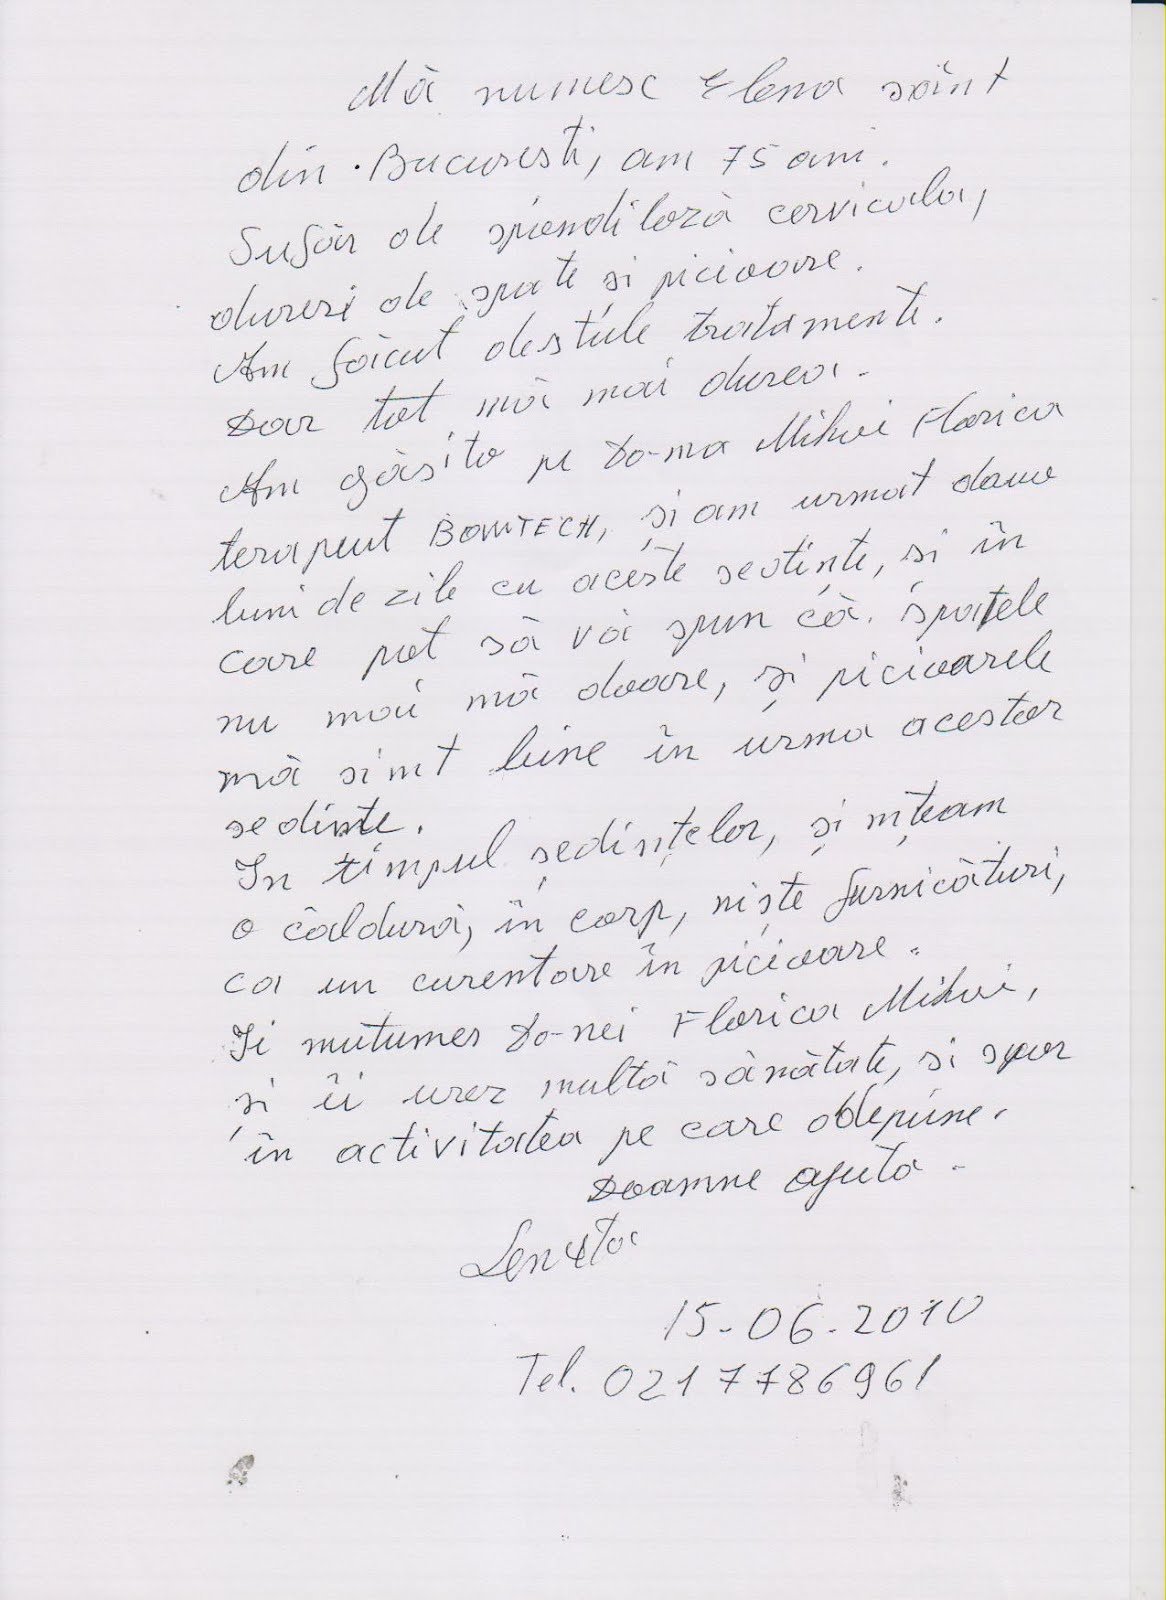 Mă numesc Elena sînt
din București, am 75 ani.
Sufăr de spondiloză cervicala,
dureri de spate si picioare.
Am făcut destule tratamente.
Dar tot mă mai durea.
Am găsito pe Do-na Mihai Florica
terapeut BOWTECH, și am urmat doua
luni de zile cu aceste sedințe, si în
care pot să vă spun că. spatele
nu mai mă doare, și picioarele
mă simt bine în urma acestor
sedinte.
In timpul ședințelor, și mțeam
o căldură, în corp, niște furnicături,
ca un curentare în picioare.
Ii multumes Do-nei Florica Mihai,
și îi urez multă sănătate, si spor
în activitatea pe care o depune.
Doamne ajuta.
Lenuta
15-06-2010
Tel. 0217786961